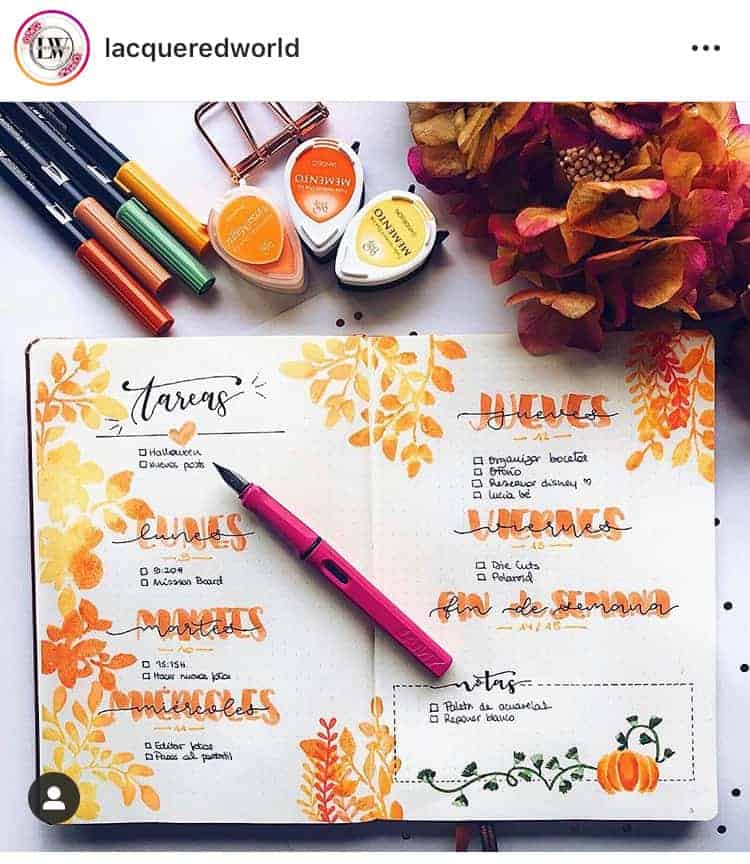 LW
lacqueredworld
MEMENTO
MEMENTO
tareas
Halloween
Nuevos posts
LUNES
lunes
9
9:20H
Mission Board
MARTES
martes
10
15:15H
Hacer nuevas fotos
MIÉRCOLES
miércoles
11
Editar fotos
al portátil
JUEVES
jueves
12
Organizar bocetos
Otoño
Reservar disney ♡
Lucia bé
VIERNES
viernes
13
Die Cuts
Polaroid
FIN DE SEMANA
fin de semana
14/15
notas
Paleta de acuarelas
Reponer blanco
LAMY